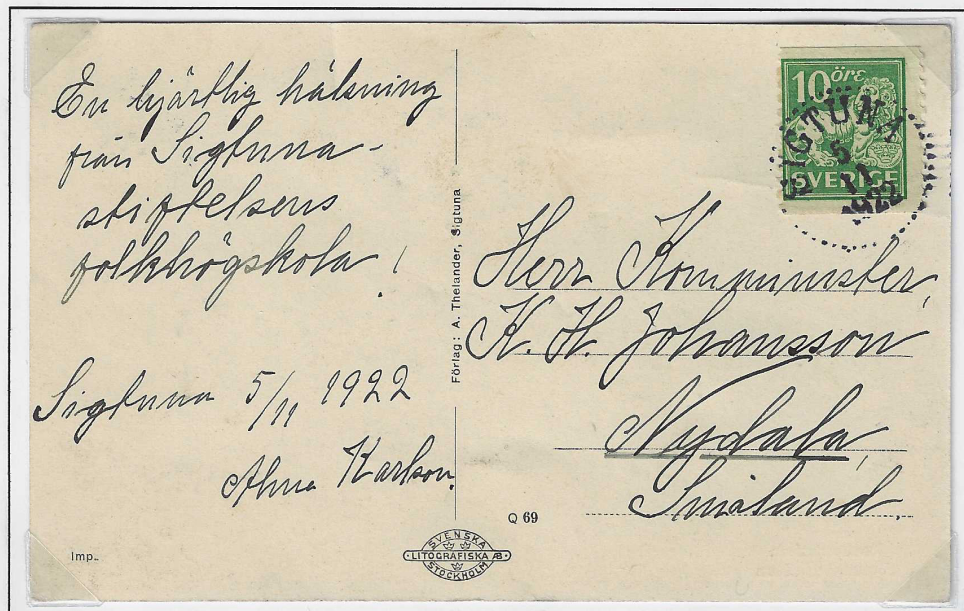 En hjärtlig hälsning
från Sigtuna-
stiftelsens
folkhögskola!
Sigtuna 5/11 1922
Alma Karlson.
Förlag: A. Thelander, Sigtuna
10 öre
SVERIGE
SIGTUNA
5
11
1922
Herr Komminister,
K. H. Johansson
Nydala,
Småland.
Q 69
Imp.
SVENSKA
LITOGRAFISKA AB
STOCKHOLM